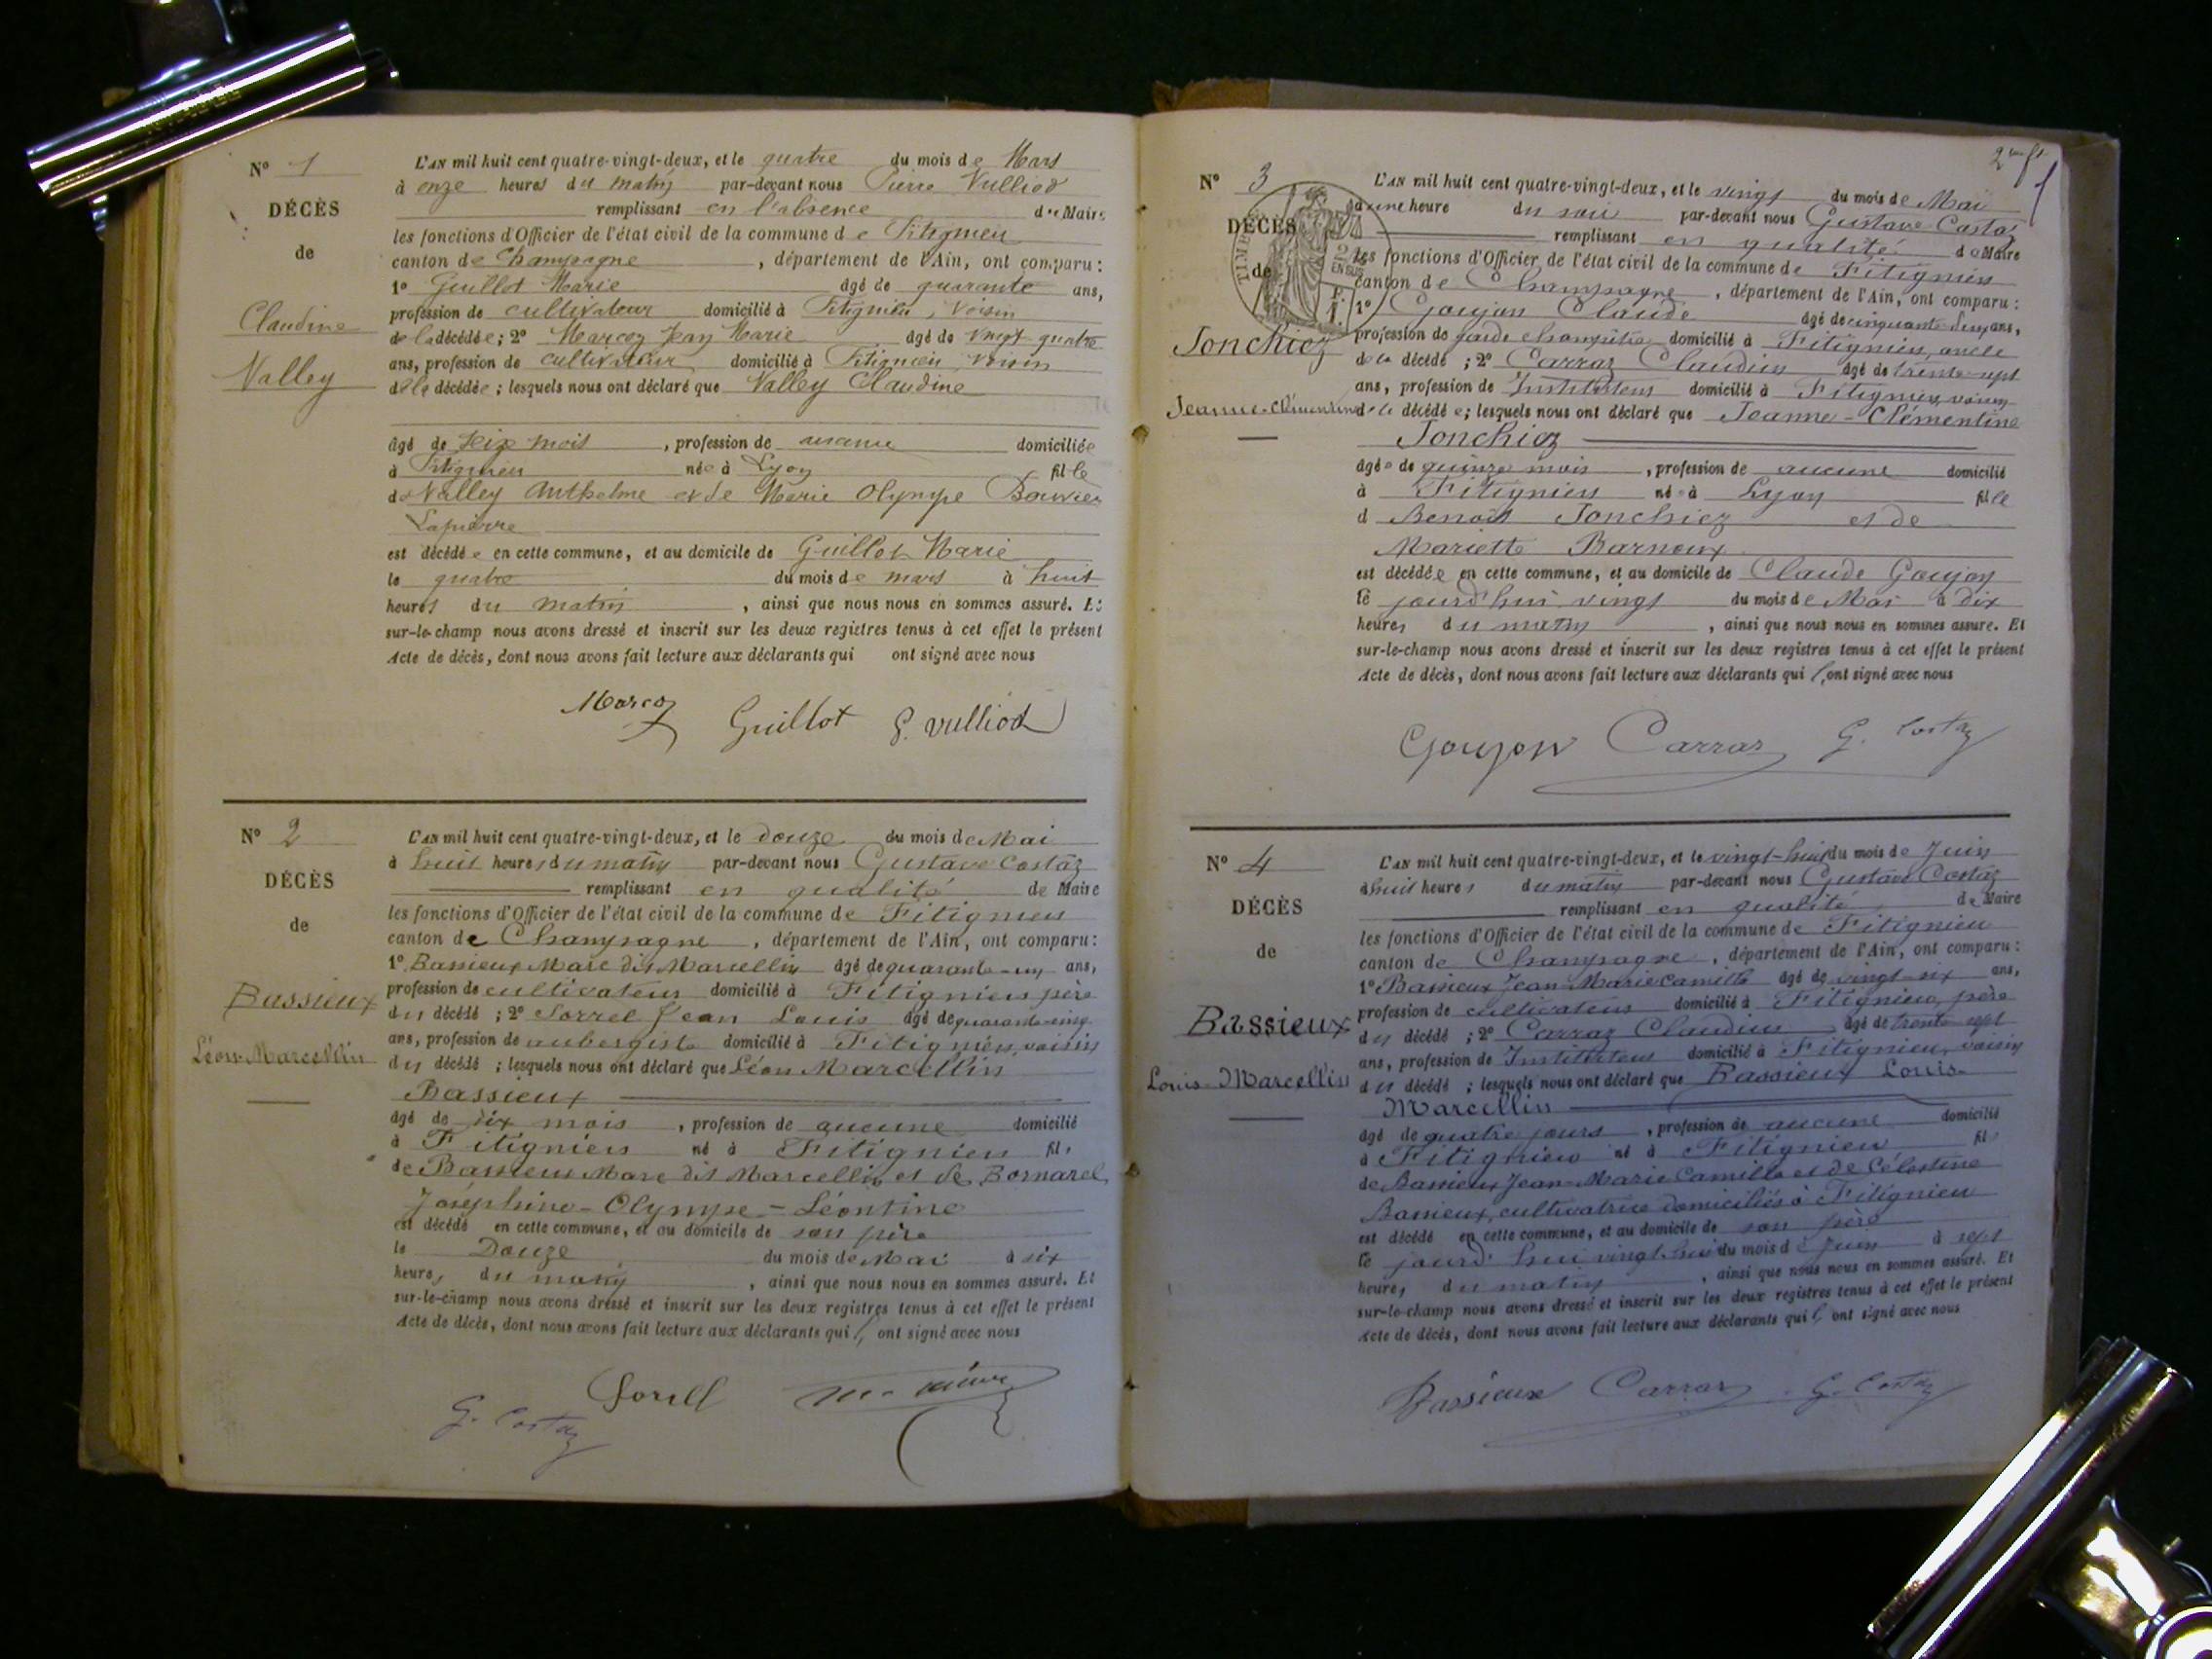 N° 1
DÉCÈS
de
Claudine
Valley
L'AN mil huit cent quatre-vingt-deux, et le quatre du mois de Mars
à onze heures du matin par-devant nous Pierre Vulliod
remplissant en l'absence du Maire
les fonctions d'Officier de l'état civil de la commune de Fitignieu
canton de Champagne, département de l'Ain, ont comparu:
1° Guillot Marie âgé de quarante ans,
profession de cultivateur domicilié à Fitignieu, voisin
de la décédée; 2° Marcoz Jean Marie âgé de vingt quatre
ans, profession de cultivateur domicilié à Fitignieu, voisin
de la décédée; lesquels nous ont déclaré que Valley Claudine
âgé de seize mois, profession de aucune domiciliée
à Fitignieu née à Lyon fille
de Valley Anthelme et de Marie Olympe Bouvier
Lapierre
est décédée en cette commune, et au domicile de Guillot Marie
le quatre du mois de mars à huit
heures du matin, ainsi que nous nous en sommes assuré. Et
sur-le-champ nous avons dressé et inscrit sur les deux registres tenus à cet effet le présent
Acte de décès, dont nous avons fait lecture aux déclarants qui ont signé avec nous
Marcoz Guillot P. Vulliod
N° 2
DÉCÈS
de
Bassieux
Léon-Marcellin
L'AN mil huit cent quatre-vingt-deux, et le douze du mois de Mai
à huit heures du matin par-devant nous Gustave Costaz
remplissant en qualité de Maire
les fonctions d'Officier de l'état civil de la commune de Fitignieu
canton de Champagne, département de l'Ain, ont comparu:
1° Bassieux Marc dit Marcellin âgé de quarante-un ans,
profession de cultivateur domicilié à Fitignieu père
du décédé; 2° Sorrel Jean Louis âgé de quarante-cinq
ans, profession de aubergiste domicilié à Fitignieu, voisin
du décédé; lesquels nous ont déclaré que Léon Marcellin
Bassieux
âgé de six mois, profession de aucune domicilié
à Fitignieu né à Fitignieu fils
de Bassieux Marc dit Marcellin et de Bornarel
Joséphine-Olympe-Léontine
est décédé en cette commune, et au domicile de son père
le Douze du mois de Mai à six
heures du matin, ainsi que nous nous en sommes assuré. Et
sur-le-champ nous avons dressé et inscrit sur les deux registres tenus à cet effet le présent
Acte de décès, dont nous avons fait lecture aux déclarants qui ont signé avec nous
G. Costaz Sorell
2me ft
N° 3
DÉCÈS
de
Jonchiez
Jeanne-Clémentine
L'AN mil huit cent quatre-vingt-deux, et le vingt du mois de Mai
à une heure du soir par-devant nous Gustave Costaz
remplissant en qualité de Maire
les fonctions d'Officier de l'état civil de la commune de Fitignieu
canton de Champagne, département de l'Ain, ont comparu:
1° Goujon Claude âgé de cinquante-deux ans,
profession de garde champêtre domicilié à Fitignieu, oncle
de la décédé; 2° Carraz Claudius âgé de trente-sept
ans, profession de Instituteur domicilié à Fitignieu, voisin
de la décédée; lesquels nous ont déclaré que Jeanne-Clémentine
Jonchiez
âgée de quinze mois, profession de aucune domicilié
à Fitignieu née à Lyon fille
d Benoît Jonchiez et de
Mariette Barnoux
est décédée en cette commune, et au domicile de Claude Goujon
le jourd'hui vingt du mois de Mai à dix
heures du matin, ainsi que nous nous en sommes assuré. Et
sur-le-champ nous avons dressé et inscrit sur les deux registres tenus à cet effet le présent
Acte de décès, dont nous avons fait lecture aux déclarants qui ont signé avec nous
Goujon Carraz G. Costaz
N° 4
DÉCÈS
de
Bassieux
Louis-Marcellin
L'AN mil huit cent quatre-vingt-deux, et le vingt-huit du mois de Juin
à huit heures du matin par-devant nous Gustave Costaz
remplissant en qualité de Maire
les fonctions d'Officier de l'état civil de la commune de Fitignieu
canton de Champagne, département de l'Ain, ont comparu:
1° Bassieux Jean-Marie Camille âgé de vingt-six ans,
profession de cultivateur domicilié à Fitignieu, père
du décédé; 2° Carraz Claudius âgé de trente sept
ans, profession de Instituteur domicilié à Fitignieu, voisin
du décédé; lesquels nous ont déclaré que Bassieux Louis-
Marcellin
âgé de quatre jours, profession de aucune domicilié
à Fitignieu né à Fitignieu fils
de Bassieux Jean-Marie Camille et de Célestine
Bassieux, cultivatrice domiciliés à Fitignieu
est décédé en cette commune, et au domicile de son père
le jourd'hui vingt-huit du mois de Juin à sept
heures du matin, ainsi que nous nous en sommes assuré. Et
sur-le-champ nous avons dressé et inscrit sur les deux registres tenus à cet effet le présent
Acte de décès, dont nous avons fait lecture aux déclarants qui ont signé avec nous
Bassieux Carraz G. Costaz